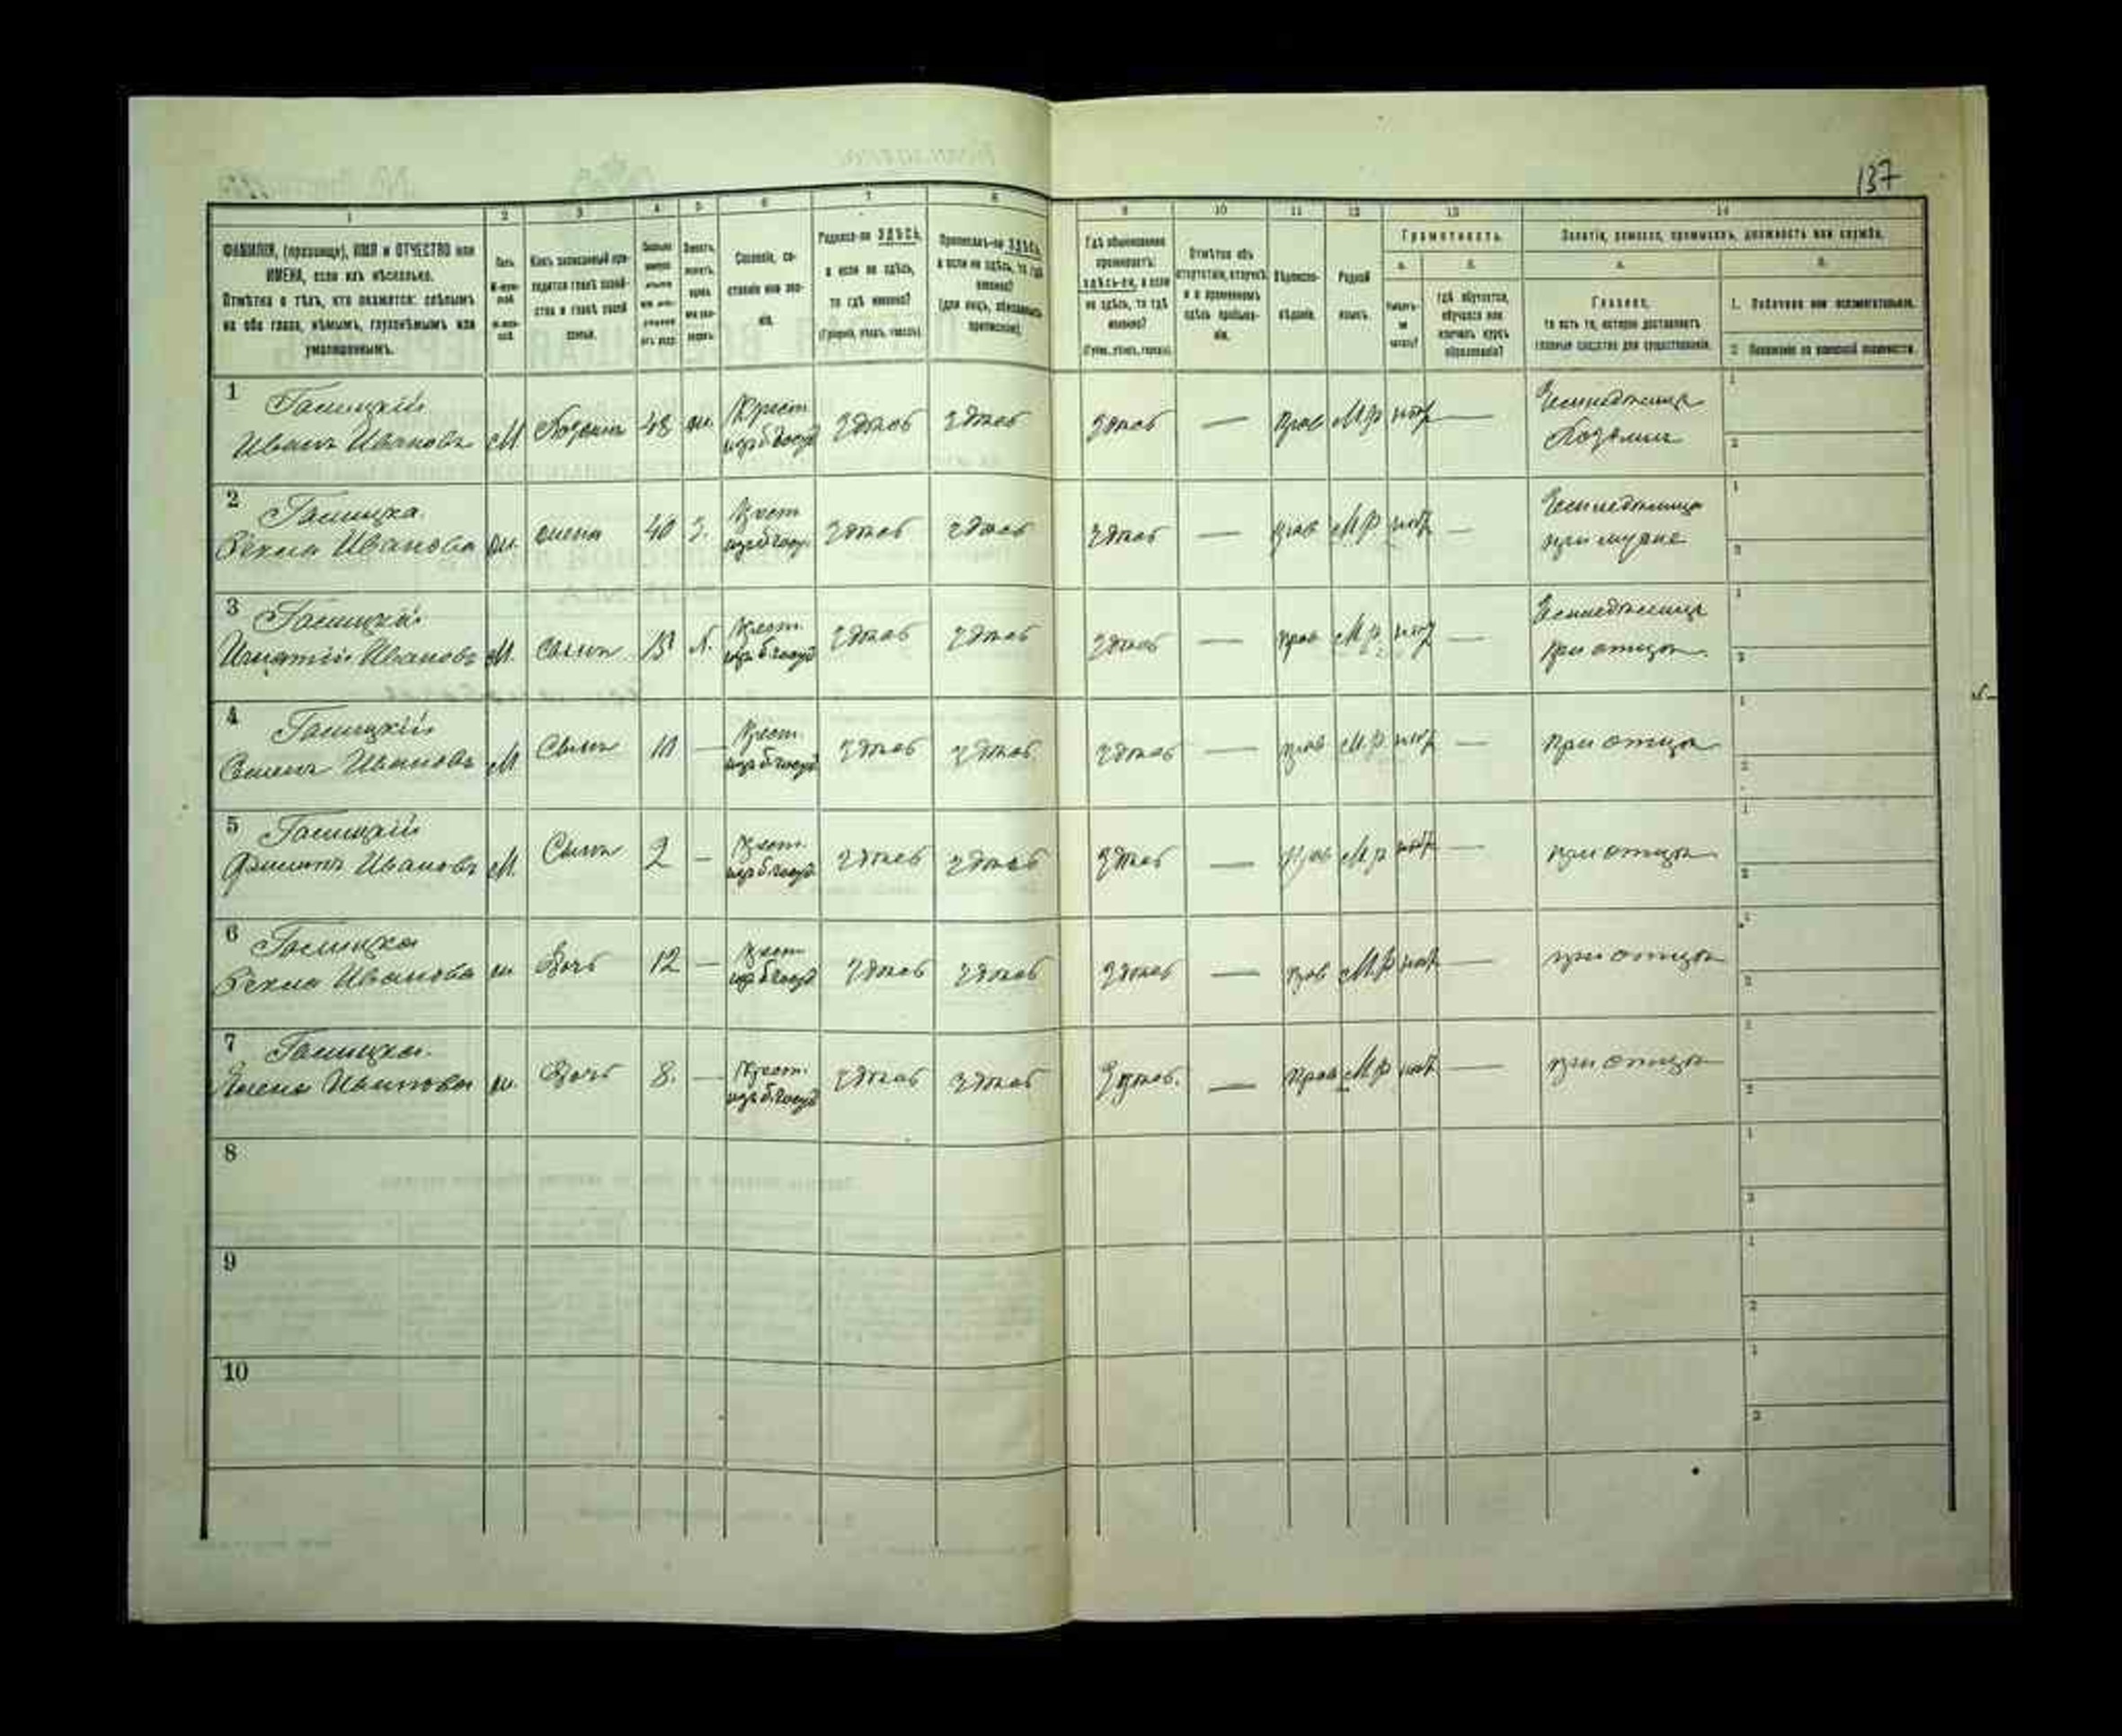 137
1 2 3 4 5 6 7 8 9 10 11 12 13 14
ФАМИЛІЯ, (прозвище), ИМЯ и ОТЧЕСТВО или
ИМЕНА, если ихъ нѣсколько.
Отмѣтка о тѣхъ, кто окажется: слѣпымъ
на оба глаза, нѣмымъ, глухонѣмымъ или
умалишеннымъ.
Полъ
Какъ записанный при-
ходится главѣ хозяй-
ства и главѣ своей
семьи.
Сословіе, со-
стояніе или зва-
ніе.
Родился-ли ЗДѢСЬ,
а если не здѣсь,
то гдѣ именно?
(Губернія, уѣздъ, городъ).
Приписанъ-ли ЗДѢСЬ,
а если не здѣсь, то гдѣ
именно?
(для лицъ, обязанныхъ
припискою).
Гдѣ обыкновенно
проживаетъ:
здѣсь-ли, а если
не здѣсь, то гдѣ
именно?
(Губ., уѣздъ, городъ).
Отмѣтка объ
отсутствіи, отлучкѣ
и о временномъ
здѣсь пребыва-
ніи.
Вѣроиспо-
вѣданіе.
Родной
языкъ.
Грамотность.
а. б.
Умѣетъ-
ли
читать?
Гдѣ обучается,
обучался или
кончилъ курсъ
образованія?
Занятіе, ремесло, промыселъ, должность или служба.
а. б.
Главное,
то есть то, которое доставляетъ
главныя средства для существованія.
1. Побочное или вспомогательное.
2. Положеніе по воинской повинности.
1 Галицкій
Иванъ Ивановъ М Хозяинъ 48 ж. Крест. изъ б. госуд. Здѣсь Здѣсь Здѣсь — Прав М.р нѣт — Земледѣлецъ
Хозяинъ
2 Галицка
Ѳекла Иванова ж. жена 40 З. Крест. изъ б. госуд. Здѣсь Здѣсь Здѣсь — прав М.р нѣт — Земледѣлица
при мужѣ
3 Галицкій
Игнатій Ивановъ М. Сынъ Крест. изъ б. госуд. Здѣсь Здѣсь Здѣсь — прав М.р. нѣт — Земледѣлецъ
при отцѣ.
4 Галицкій
Семенъ Ивановъ М Сынъ 10 — Крест. изъ б. госуд. Здѣсь Здѣсь Здѣсь — прав М.р. нѣт — при отцѣ
5 Галицкій
Филипъ Ивановъ М. Сынъ 2 — Крест. изъ б. госуд. Здѣсь Здѣсь Здѣсь — прав М.р нѣт — при отцѣ
6 Галицка
Ѳекла Иванова ж. Дочь 12 — Крест. изъ б. госуд. Здѣсь Здѣсь Здѣсь — прав М.р нѣт — при отцѣ
7 Галицка
Елена Иванова ж. Дочь 8. — Крест. изъ б. госуд. Здѣсь Здѣсь Здѣсь. — прав М.р нѣт — при отцѣ
8
9
10